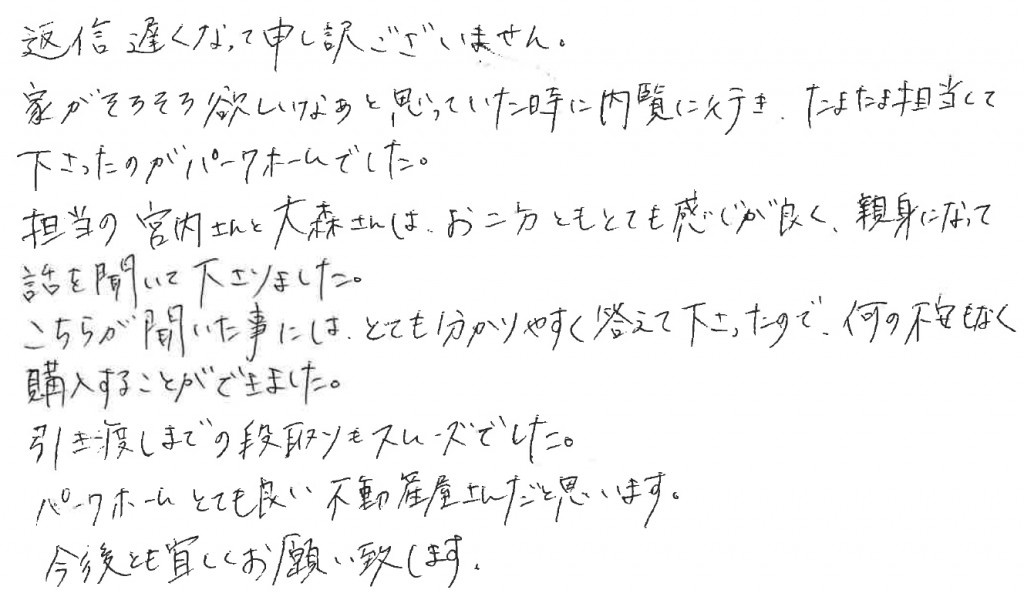 返信遅くなって申し訳ございません。
家がそろそろ欲しいなぁと思っていた時に内覧に行き、たまたま担当して
下さったのがパークホームでした。
担当の宮内さんと大森さんは、お二方ともとても感じが良く、親身になって
話を聞いて下さりました。
こちらが聞いた事には、とても分かりやすく答えて下さったので、何の不安もなく
購入することができました。
引き渡しまでの段取りもスムーズでした。
パークホームとても良い不動産屋さんだと思います。
今後とも宜しくお願い致します。